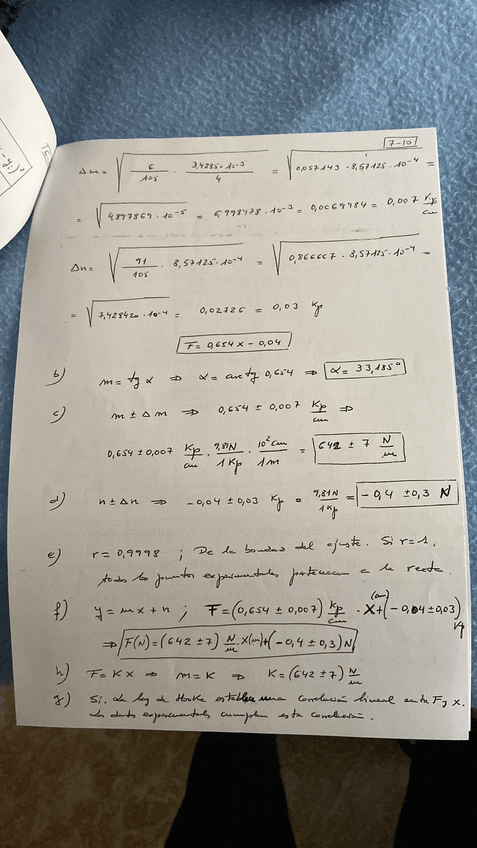 7-10
Δm = √(6/105 · 3,4285·10⁻³/4) = √(0,057143 · 8,57125·10⁻⁴) =
= √(4,897869·10⁻⁵) = 6,998478·10⁻³ = 0,0069984 = 0,007 Kp/cm
Δn = √(91/105 · 8,57125·10⁻⁴) = √(0,866667 · 8,57125·10⁻⁴) =
= √(7,42842·10⁻⁴) = 0,02726 = 0,03 Kp
F = 0,654 x - 0,04
b) m = tg α ⇒ α = arc tg 0,654 ⇒ α = 33,185°
c) m ± Δm ⇒ 0,654 ± 0,007 Kp/cm ⇒
0,654 ± 0,007 Kp/cm · 9,81N/1Kp · 10² cm/1m = 642 ± 7 N/m
d) n ± Δn ⇒ -0,04 ± 0,03 Kp = 9,81N/1Kp = -0,4 ± 0,3 N
e) r = 0,9998 ; De la bondad del ajuste. Si r = 1,
todos los puntos experimentales pertenecen a la recta.
f) y = mx + n ; F = (0,654 ± 0,007) Kp/cm · X(cm) + (-0,04 ± 0,03) Kp
⇒ F(N) = (642 ± 7) N/m · X(m) + (-0,4 ± 0,3) N
h) F = KX ⇒ m = K ⇒ K = (642 ± 7) N/m
g) Si. La ley de Hooke establece una correlación lineal entre F y X.
Los datos experimentales cumplen esta correlación.